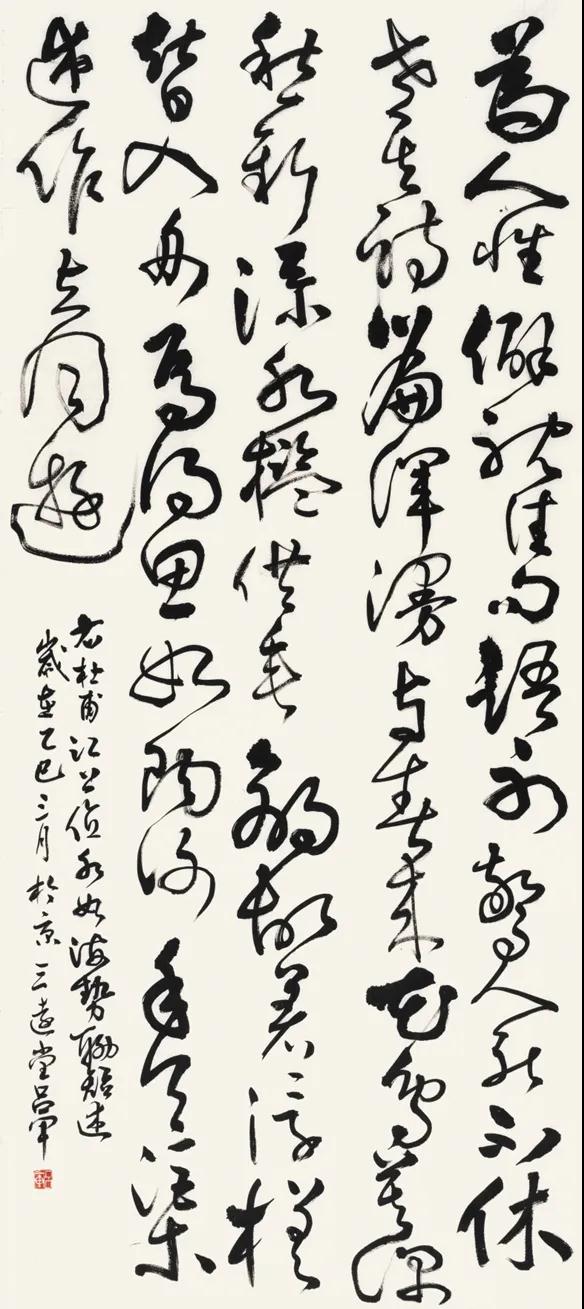 為人性僻耽佳句語不驚人死不休
老去詩篇渾漫与春來花鳥莫深
愁新添水檻供垂釣故着浮槎
替入舟焉得思如陶謝手令渠
述作与同遊
右杜甫江上值水如海勢聊短述
歲在乙巳三月於京三遠堂呂軍